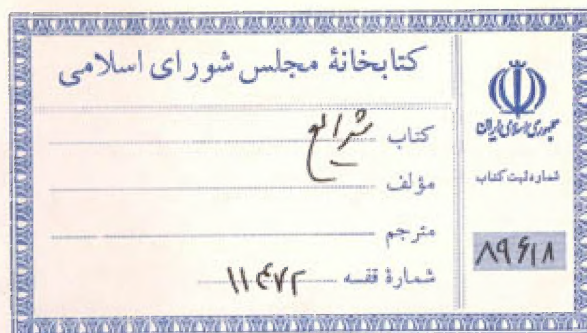 کتابخانهٔ مجلس شورای اسلامی
کتاب شرایع
مؤلف
مترجم
شمارهٔ قفسه ۱۱۴۷۲
جمهوری اسلامی ایران
شماره ثبت کتاب
۸۹۶۱۸